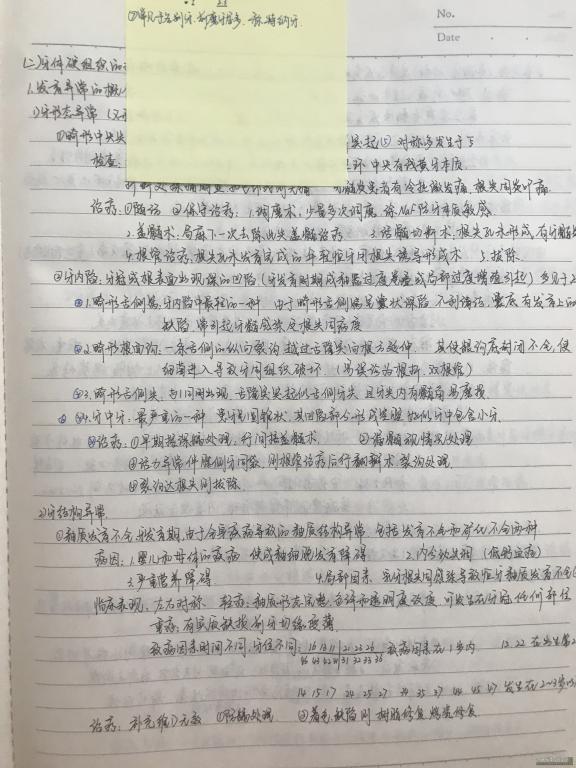 No.
Date
(二)牙体硬组织的
1.发育异常的概
1)牙形态异常(又
①畸形中央尖
突起 对称多发生于下
检查:
环 中央有浅黄牙本质
治疗:①随访 ②保守治疗:1.调磨术:少量多次调磨,涂NaF防牙本质敏感
2.盖髓术:局麻下一次去除此尖盖髓治疗 3.活髓切断术:根尖孔未形成,有牙髓
4.根管治疗,根尖孔未发育完成的年轻恒牙用根尖诱导形成术 5.拔除
②牙内陷:牙冠或根表面出现深的凹陷(牙发育时期成釉器过度卷叠或局部过度增殖引起)多见于上
1.畸形舌侧窝:牙内陷中最轻的一种 由于畸形舌侧窝呈囊状深陷,不利清洁,囊底有发育上的
缺陷,常引起牙髓感染及根尖周病变
2.畸形根面沟:一条舌侧的纵向裂沟越过舌隆突向根方延伸 其使龈沟底封闭不全,使
细菌进入导致牙周组织破坏(易误诊为根折、双根管)
3.畸形舌侧尖:与1同时出现,舌隆突突起似舌侧牙尖,且牙尖内有髓角易磨损
4.牙中牙:最严重的一种 呈圆锥状,其凹陷部分形成空腔,貌似牙中包含小牙
治疗:①早期按深龋处理,行间接盖髓术 ②看髓视情况处理
③活力异常伴腭侧牙周袋,则根管治疗后行翻瓣术,裂沟处理
④裂沟达根尖则拔除
2)牙结构异常
①釉质发育不全:牙发育期,由于全身疾病导致的釉质结构异常,包括发育不全和矿化不全两种
病因:1.婴儿和母体的疾病 使成釉细胞发育障碍 2.内分泌失调
3.严重营养障碍 4.局部因素 乳牙根尖周感染导致恒牙釉质发育不全
临床表现:左右对称 轻症:釉质形态完整,色泽和透明度改变 可发生在牙冠任何部位
重症:有实质缺损,前牙切缘变薄
致病因素时间不同,牙位不同:16 13 11 21 23 26 致病因素在1岁内 12 22 在出生第2
46 43 42 41 31 32 33 36
14 15 17 24 25 27 34 35 37 44 45 47 发生在2~3岁以
治疗:补充维D元素 ①防龋处理 ②着色、缺陷则 树脂修复,烤瓷修复